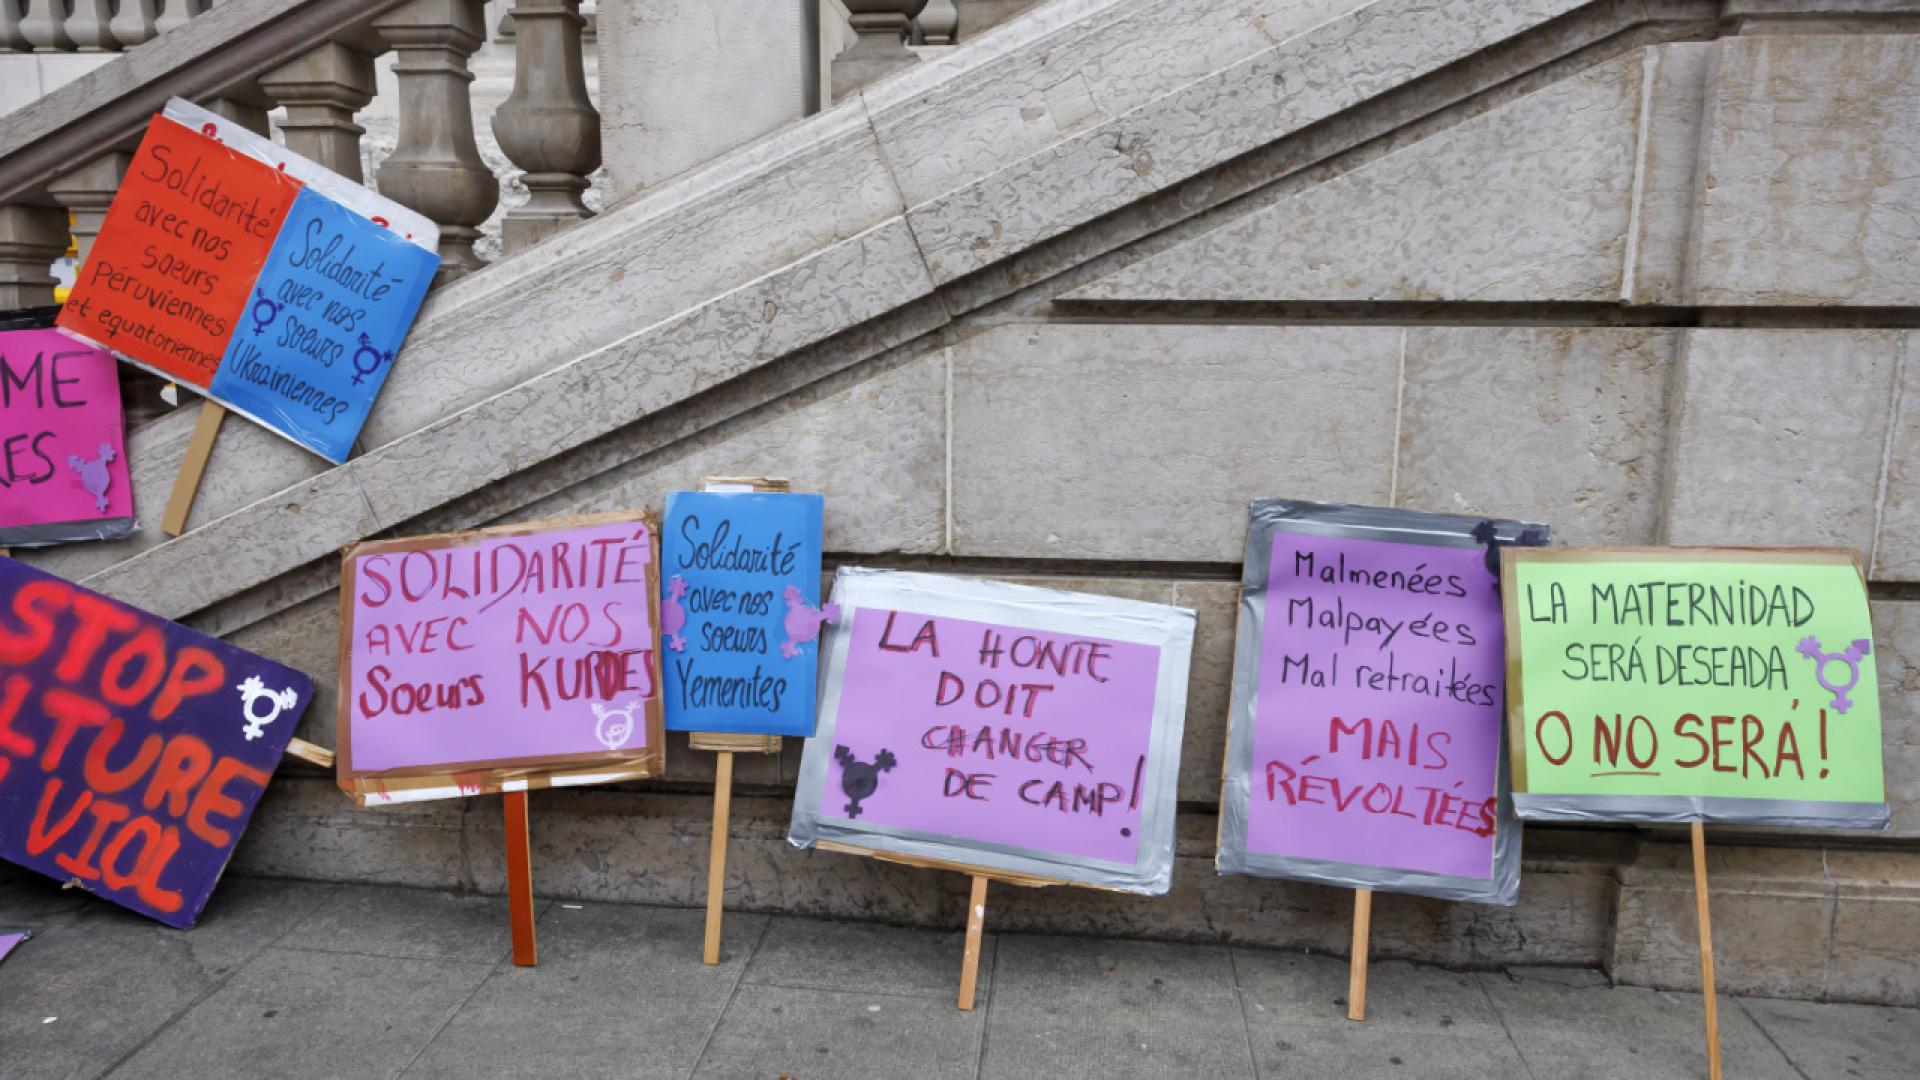 Solidarité
avec nos
soeurs
Péruviennes
et equatoriennes
Solidarité
avec nos
soeurs
UKrainiennes
ME
RES
STOP
LTURE
VIOL
SOLIDARITÉ
AVEC NOS
Soeurs KURDES
Solidarité
avec nos
soeurs
Yemenites
LA HONTE
DOIT
CHANGER
DE CAMP!
Malmenées
Malpayées
Mal retraitées
MAIS
RÉVOLTÉES
LA MATERNiDAD
SERÁ DESEADA
O NO SERÁ!